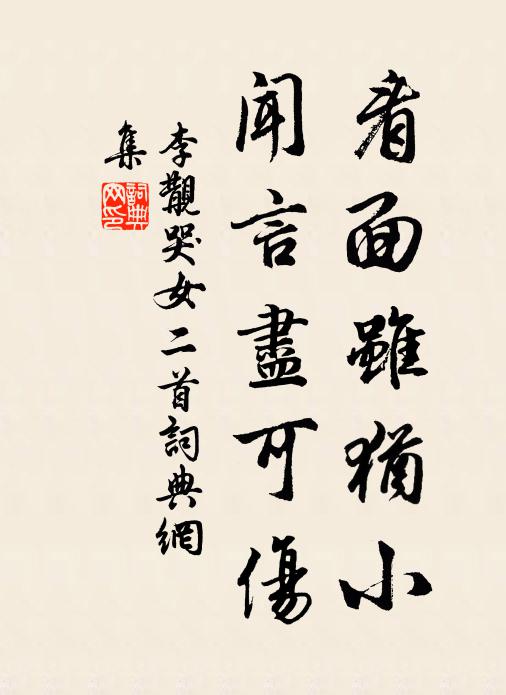 看面雖猶小
聞言盡可傷
李覯哭女二首詞典網
集
詞典
网印